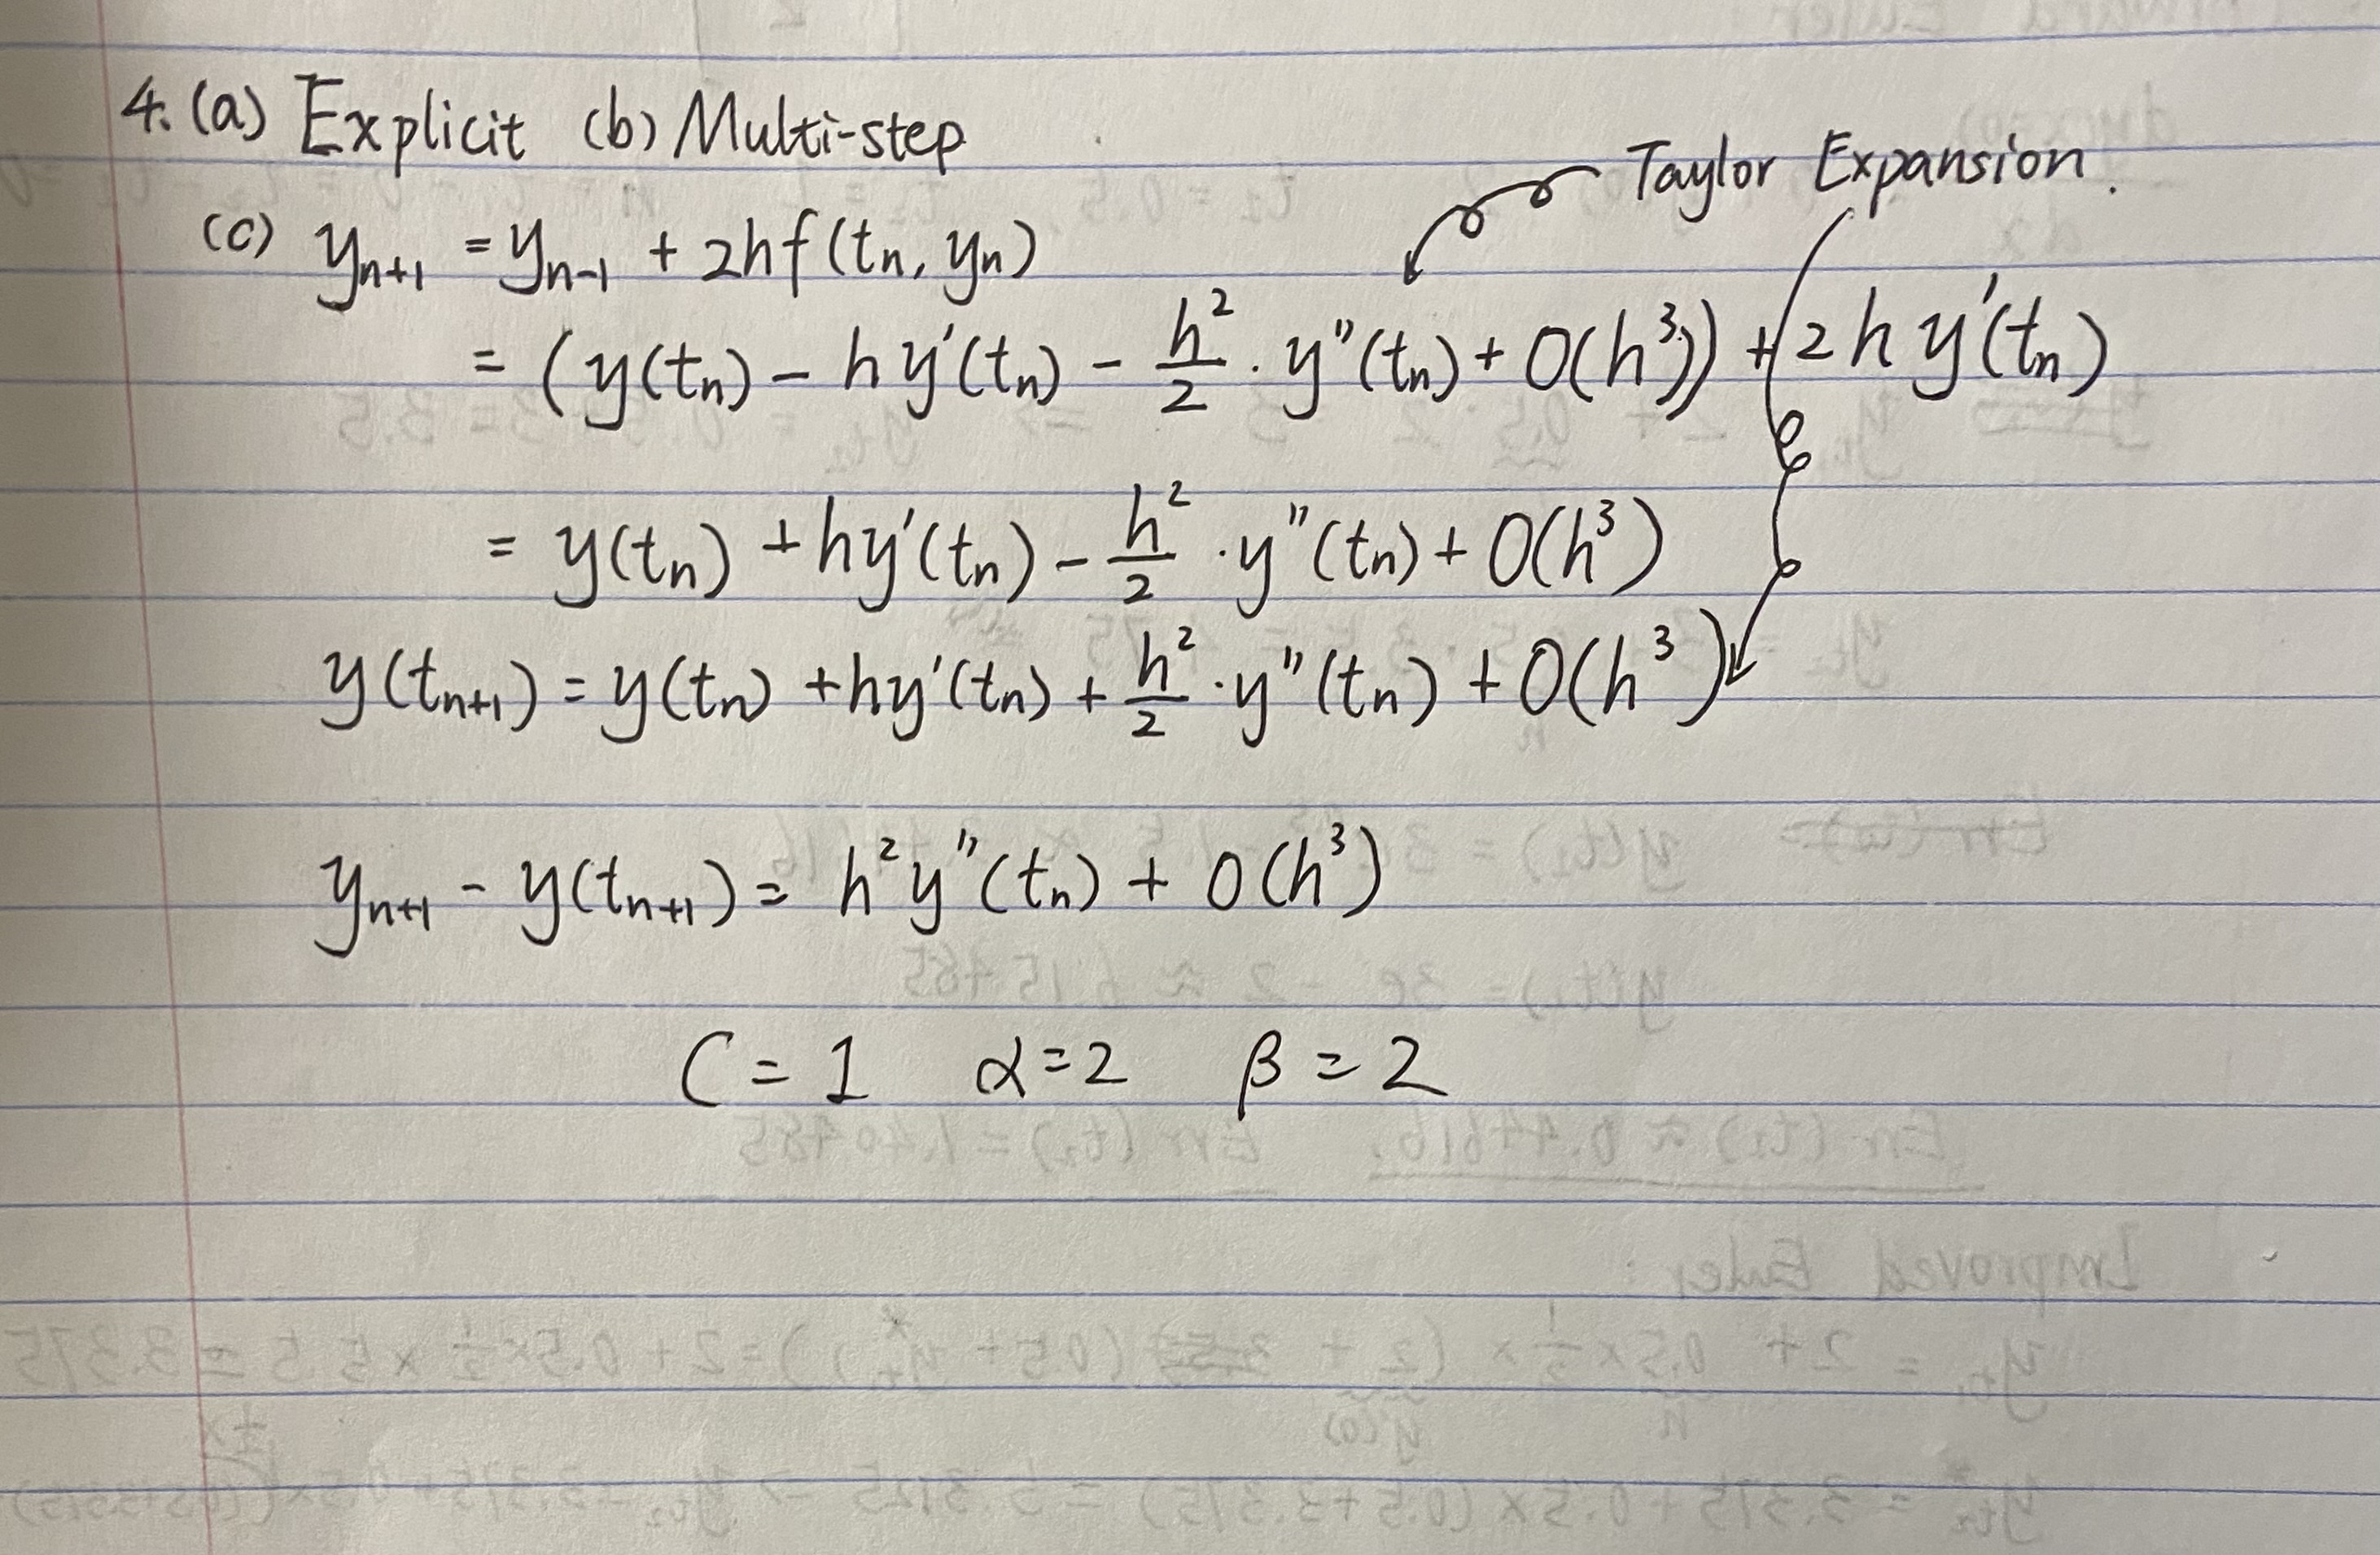 4. (a) Explicit (b) Multi-step
Taylor Expansion.
(c) yₙ₊₁ = yₙ₋₁ + 2hf(tₙ, yₙ)
= (y(tₙ) - hy'(tₙ) - h²/2 · y''(tₙ) + O(h³)) + 2hy'(tₙ)
= y(tₙ) + hy'(tₙ) - h²/2 · y''(tₙ) + O(h³)
y(tₙ₊₁) = y(tₙ) + hy'(tₙ) + h²/2 · y''(tₙ) + O(h³)
yₙ₊₁ - y(tₙ₊₁) = h²y''(tₙ) + O(h³)
C = 1 α = 2 β = 2